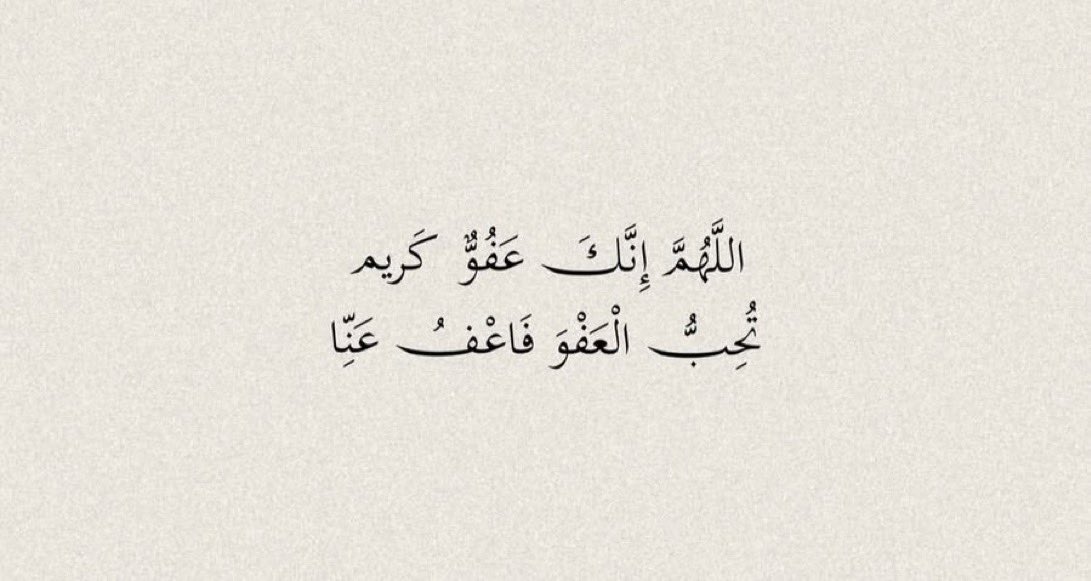 اللَّهُمَّ إِنَّكَ عَفُوٌّ كَريم
تُحِبُّ الْعَفْوَ فَاعْفُ عَنِّا